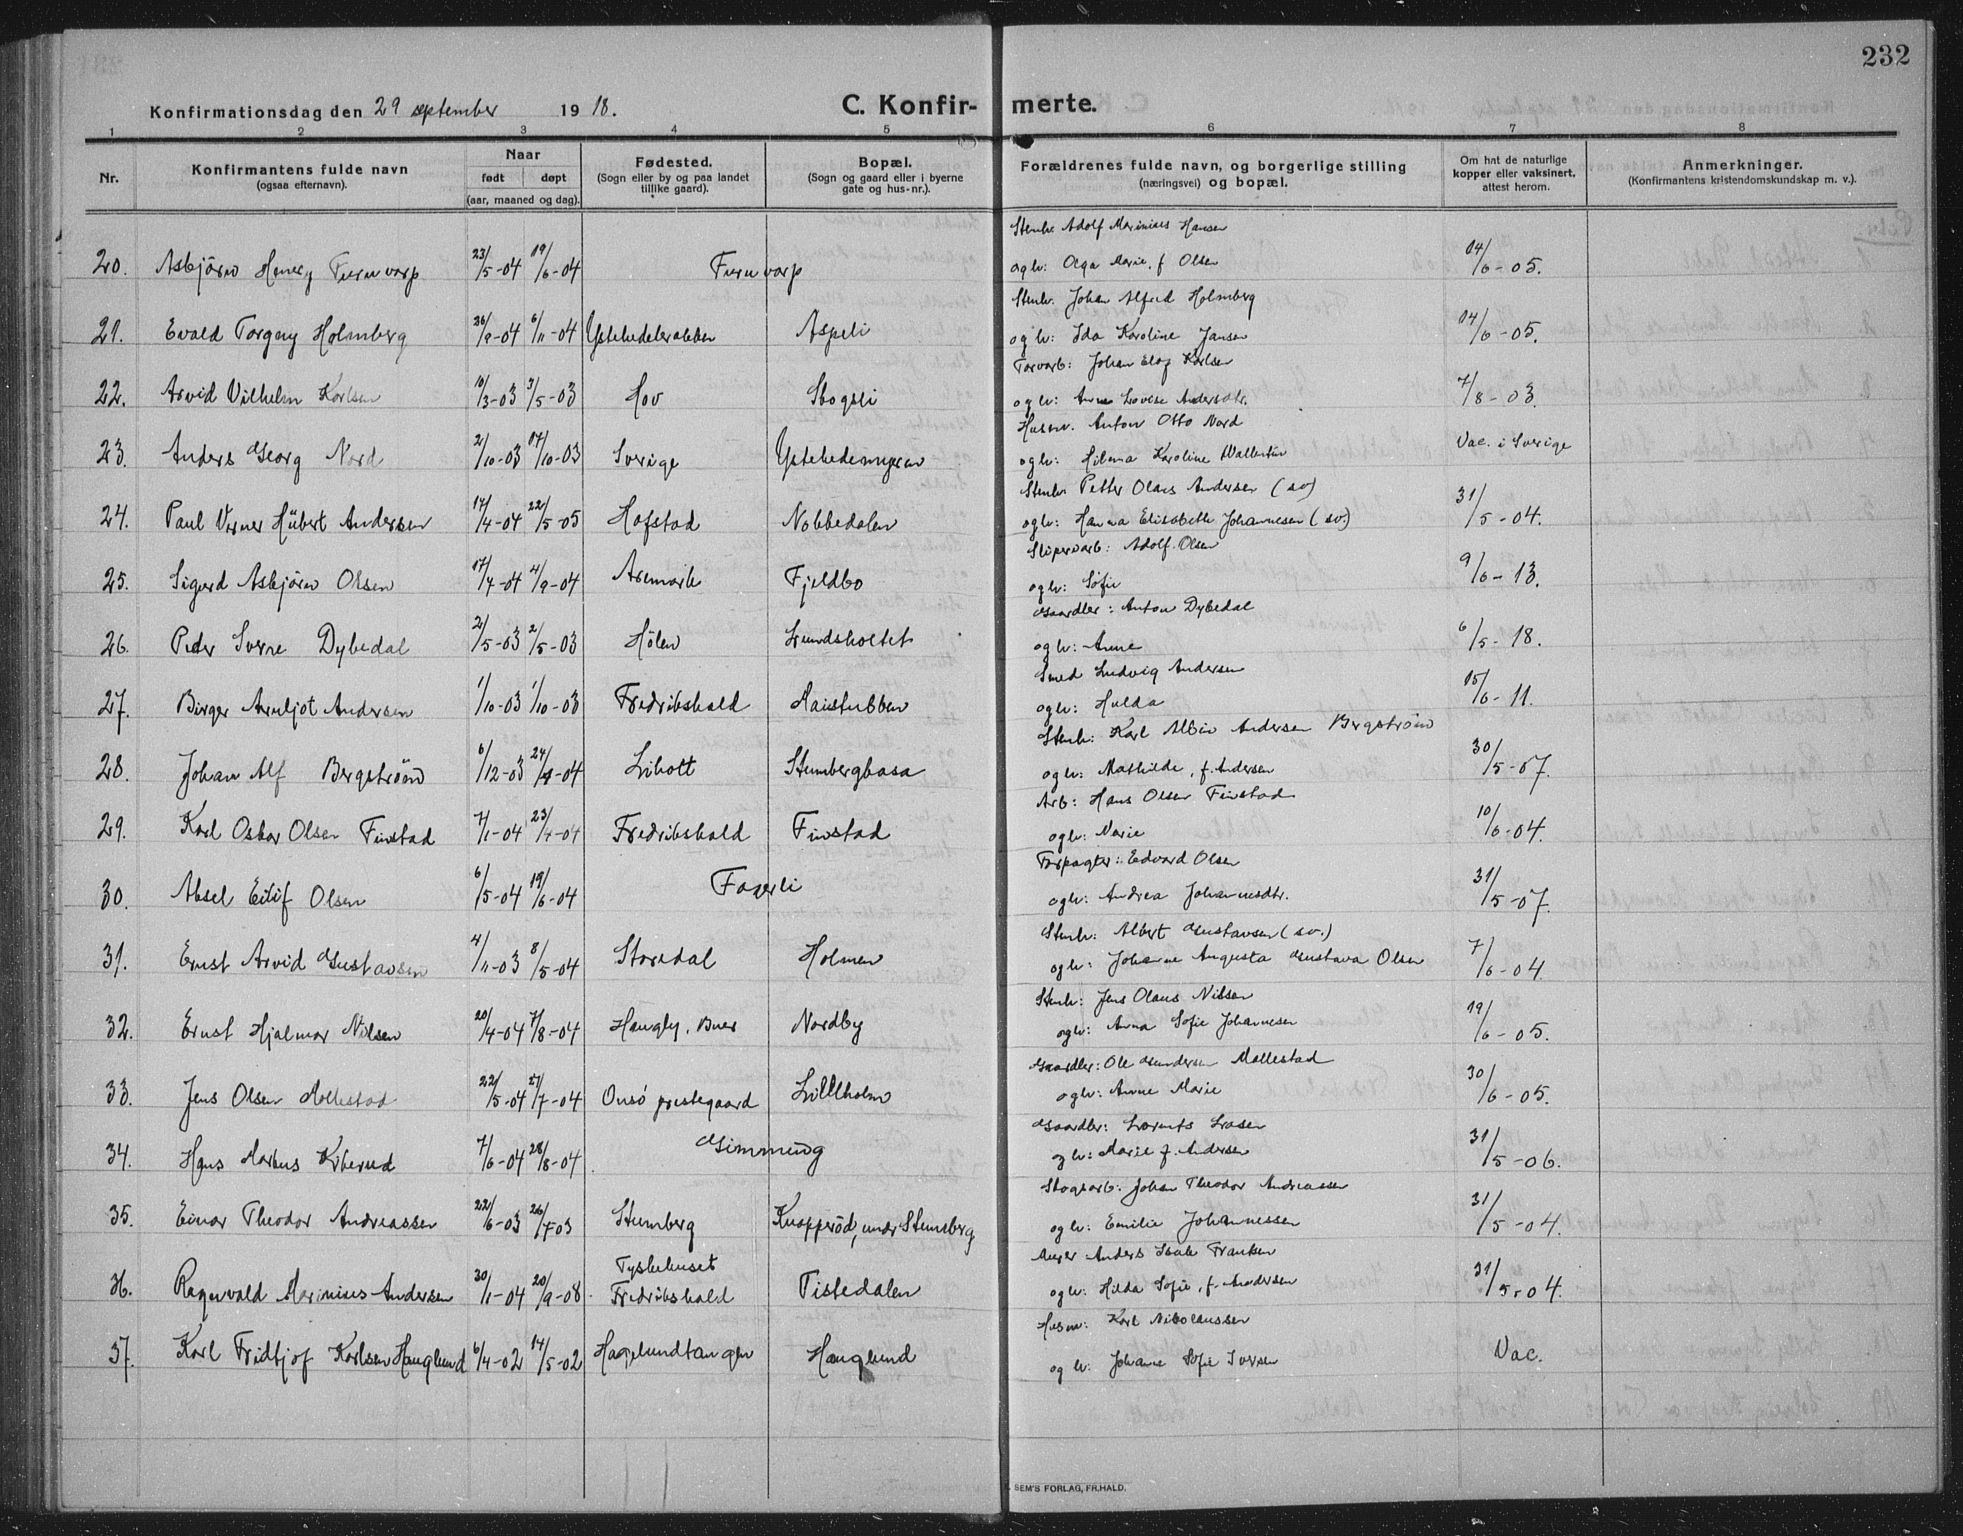 232
Konfirmationsdag den 29 september 1918.
C. Konfirmerte.
1 2 3 4 5 6 7 8
Nr.
Konfirmantens fulde navn
(ogsaa efternavn).
Naar
født døpt
(aar, maaned og dag).
Fødested.
(Sogn eller by og paa landet
tillike gaard).
Bopæl.
(Sogn og gaard eller i byerne
gate og hus-nr.).
Forældrenes fulde navn, og borgerlige stilling
(næringsvei) og bopæl.
Om hat de naturlige
kopper eller vaksinert,
attest herom.
Anmerkninger.
(Konfirmantens kristendomskundskap m. v.).
Stenh. Adolf Marinius Hansen
20. Asbjørn Henry Furuvarp 23/5-04 19/6-04 Furuvarp og h: Olga Marie, f. Olsen 14/6-05.
Stenh. Johan Alfred Holmberg
21. Evald Torgny Holmberg 26/9-04 6/11-04 Aspeli og h: Ida Karoline Jansen 14/6-05.
Torvarb: Johan Elof Karlsen
22. Arvid Vilhelm Karlsen 10/3-03 3/5-03 Hov Skogsli og h: Anna Lovise Andersdtr. 7/8-03.
Husm. Anton Otto Nord
23. Anders Georg Nord 2/10-03 17/10-03 Sverige Ystehedemyren og h: Hilma Karoline Wallentin Vac. i Sverige
Stenh. Petter Olaus Andersen (sv)
24. Paul Verner Hübert Andersen 17/4-04 22/5-05 Hofstad Nokkedalen og h: Hanna Elisabeth Johannesen (sv.) 31/5-04.
Sliperiarb: Adolf Olsen
25. Sigurd Asbjørn Olsen 17/7-04 4/9-04 Aremark Fjeldbo og h: Sofie 9/6-13.
Gaardbr: Anton Dybedal
26. Peder Sverre Dybedal 2/5-03 2/5-03 Hølen Lundsholtet og h: Anna 6/5-18.
Smed Ludvig Andersen
27. Birger Arnljot Andersen 1/10-03 1/10-03 Fredrikshald Maistubben og h: Hulda 15/6-11.
Stenh: Karl Albin Andersen Bergstrøm
28. Johan Alf Bergstrøm 6/12-03 24/4-04 Liholt Stumbergbasa og h: Mathilde, f. Andersen 30/5-07.
Arb: Hans Olsen Finstad
29. Karl Oskar Olsen Finstad 7/1-04 23/4-04 Fredrikshald Finstad og h: Marie 10/6-04.
Forpagter: Edvard Olsen
30. Aksel Eilif Olsen 6/5-04 19/6-04 Fagerli og h: Andrea Johannesdtr. 31/5-07.
Stenh: Albert Gustavsen (sv.)
31. Ernst Arvid Gustavsen 4/11-03 8/5-04 Storedal Holmen og h: Johanne Augusta Gustava Olsen 7/6-04.
Stenh: Jens Olaus Nilsen
32. Ernst Hjalmar Nilsen 20/4-04 7/8-04 Haugby, Buer Nordby og h: Anna Sofie Johannesen 19/6-05.
Gaardbr: Ole Gundersen Mollestad
33. Jens Olsen Mollestad 22/5-04 27/7-04 Onsø prestegaard Lillholm og h: Anne Marie 30/6-05.
Gaardbr: Lorents Larsen
34. Hans Markus Kiserud 7/6-04 28/8-04 Gimming og h: Marie f. Andersen 31/5-06.
Skogsarb: Johan Theodor Andreassen
35. Einar Theodor Andreassen 22/6-03 26/7-03 Stumberg Knapperød, under Stumberg og h: Emilie Johannessen 31/5-04.
Murer Anders Isak Fransen
36. Ragnvald Marinius Andersen 30/1-04 20/9-08. Tyskehuset Fredrikshald Tistedalen og h: Hilda Sofie, f. Andersen 31/5-04.
Husm: Karl Nikolaussen
37. Karl Fridtjof Karlsen Hauglund 6/4-02 14/5-02 Hagelundtangen Hauglund og h: Johanne Sofie Iversen Vac.
SEM'S FORLAG, FR.HALD.